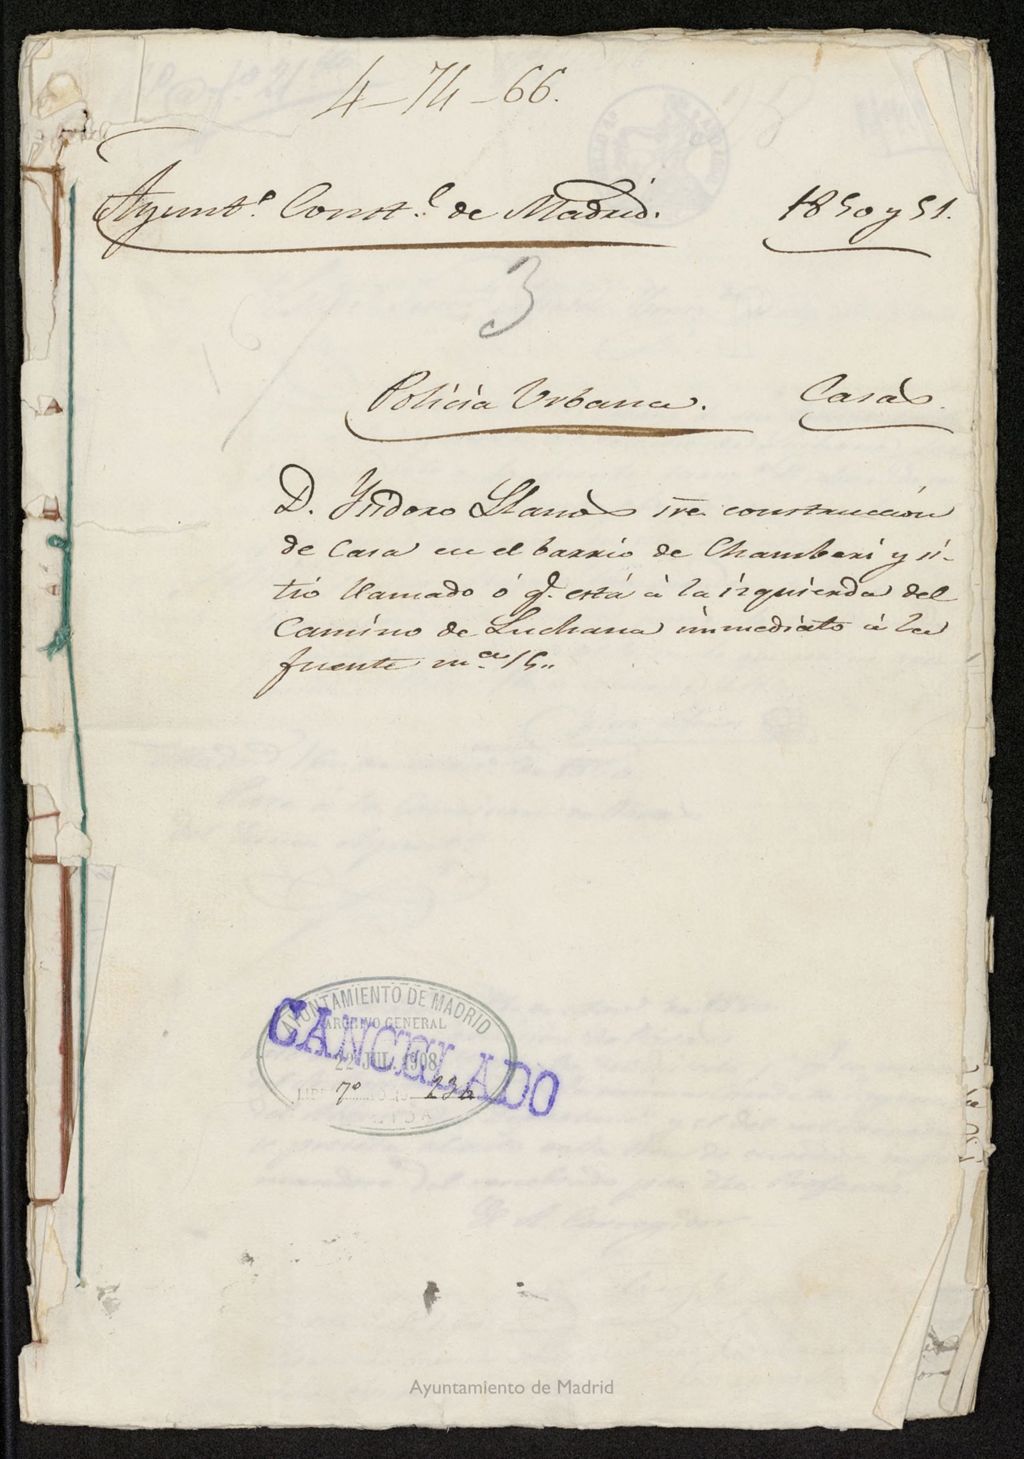 4-74-66.
Ayunt.º Const.l de Madrid. 1850 y 51.
3
Policia Urbana. Casas.
D. Ysidoro Llanos sre construccion
de Casa en el barrio de Chamberi y si-
tio llamado ó q.e está á la izquierda del
Camino de Luchana inmediato á la
fuente m.a 15..
AYUNTAMIENTO DE MADRID
ARCHIVO GENERAL
22 JUL. 1908
7º 236
CANCELADO
Ayuntamiento de Madrid